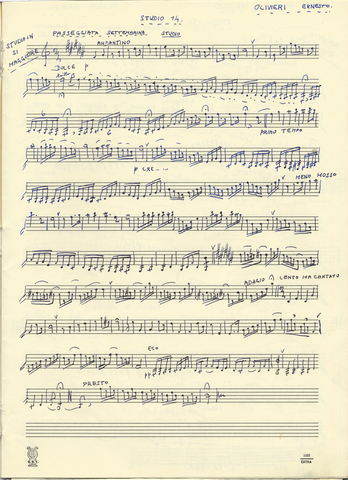 OLIVIERI ERNESTO.
STUDIO 14.
STUDIO IN
SI
MAGGIORE
PASSEGGIATA SETTEMBRINA. STUDIO
ANDANTINO
DOLCE P
PRIMO TEMPO
P CRE...
MENO MOSSO
ADAGIO LENTO MA CANTATO
ECO
PRESTO
EXTRA